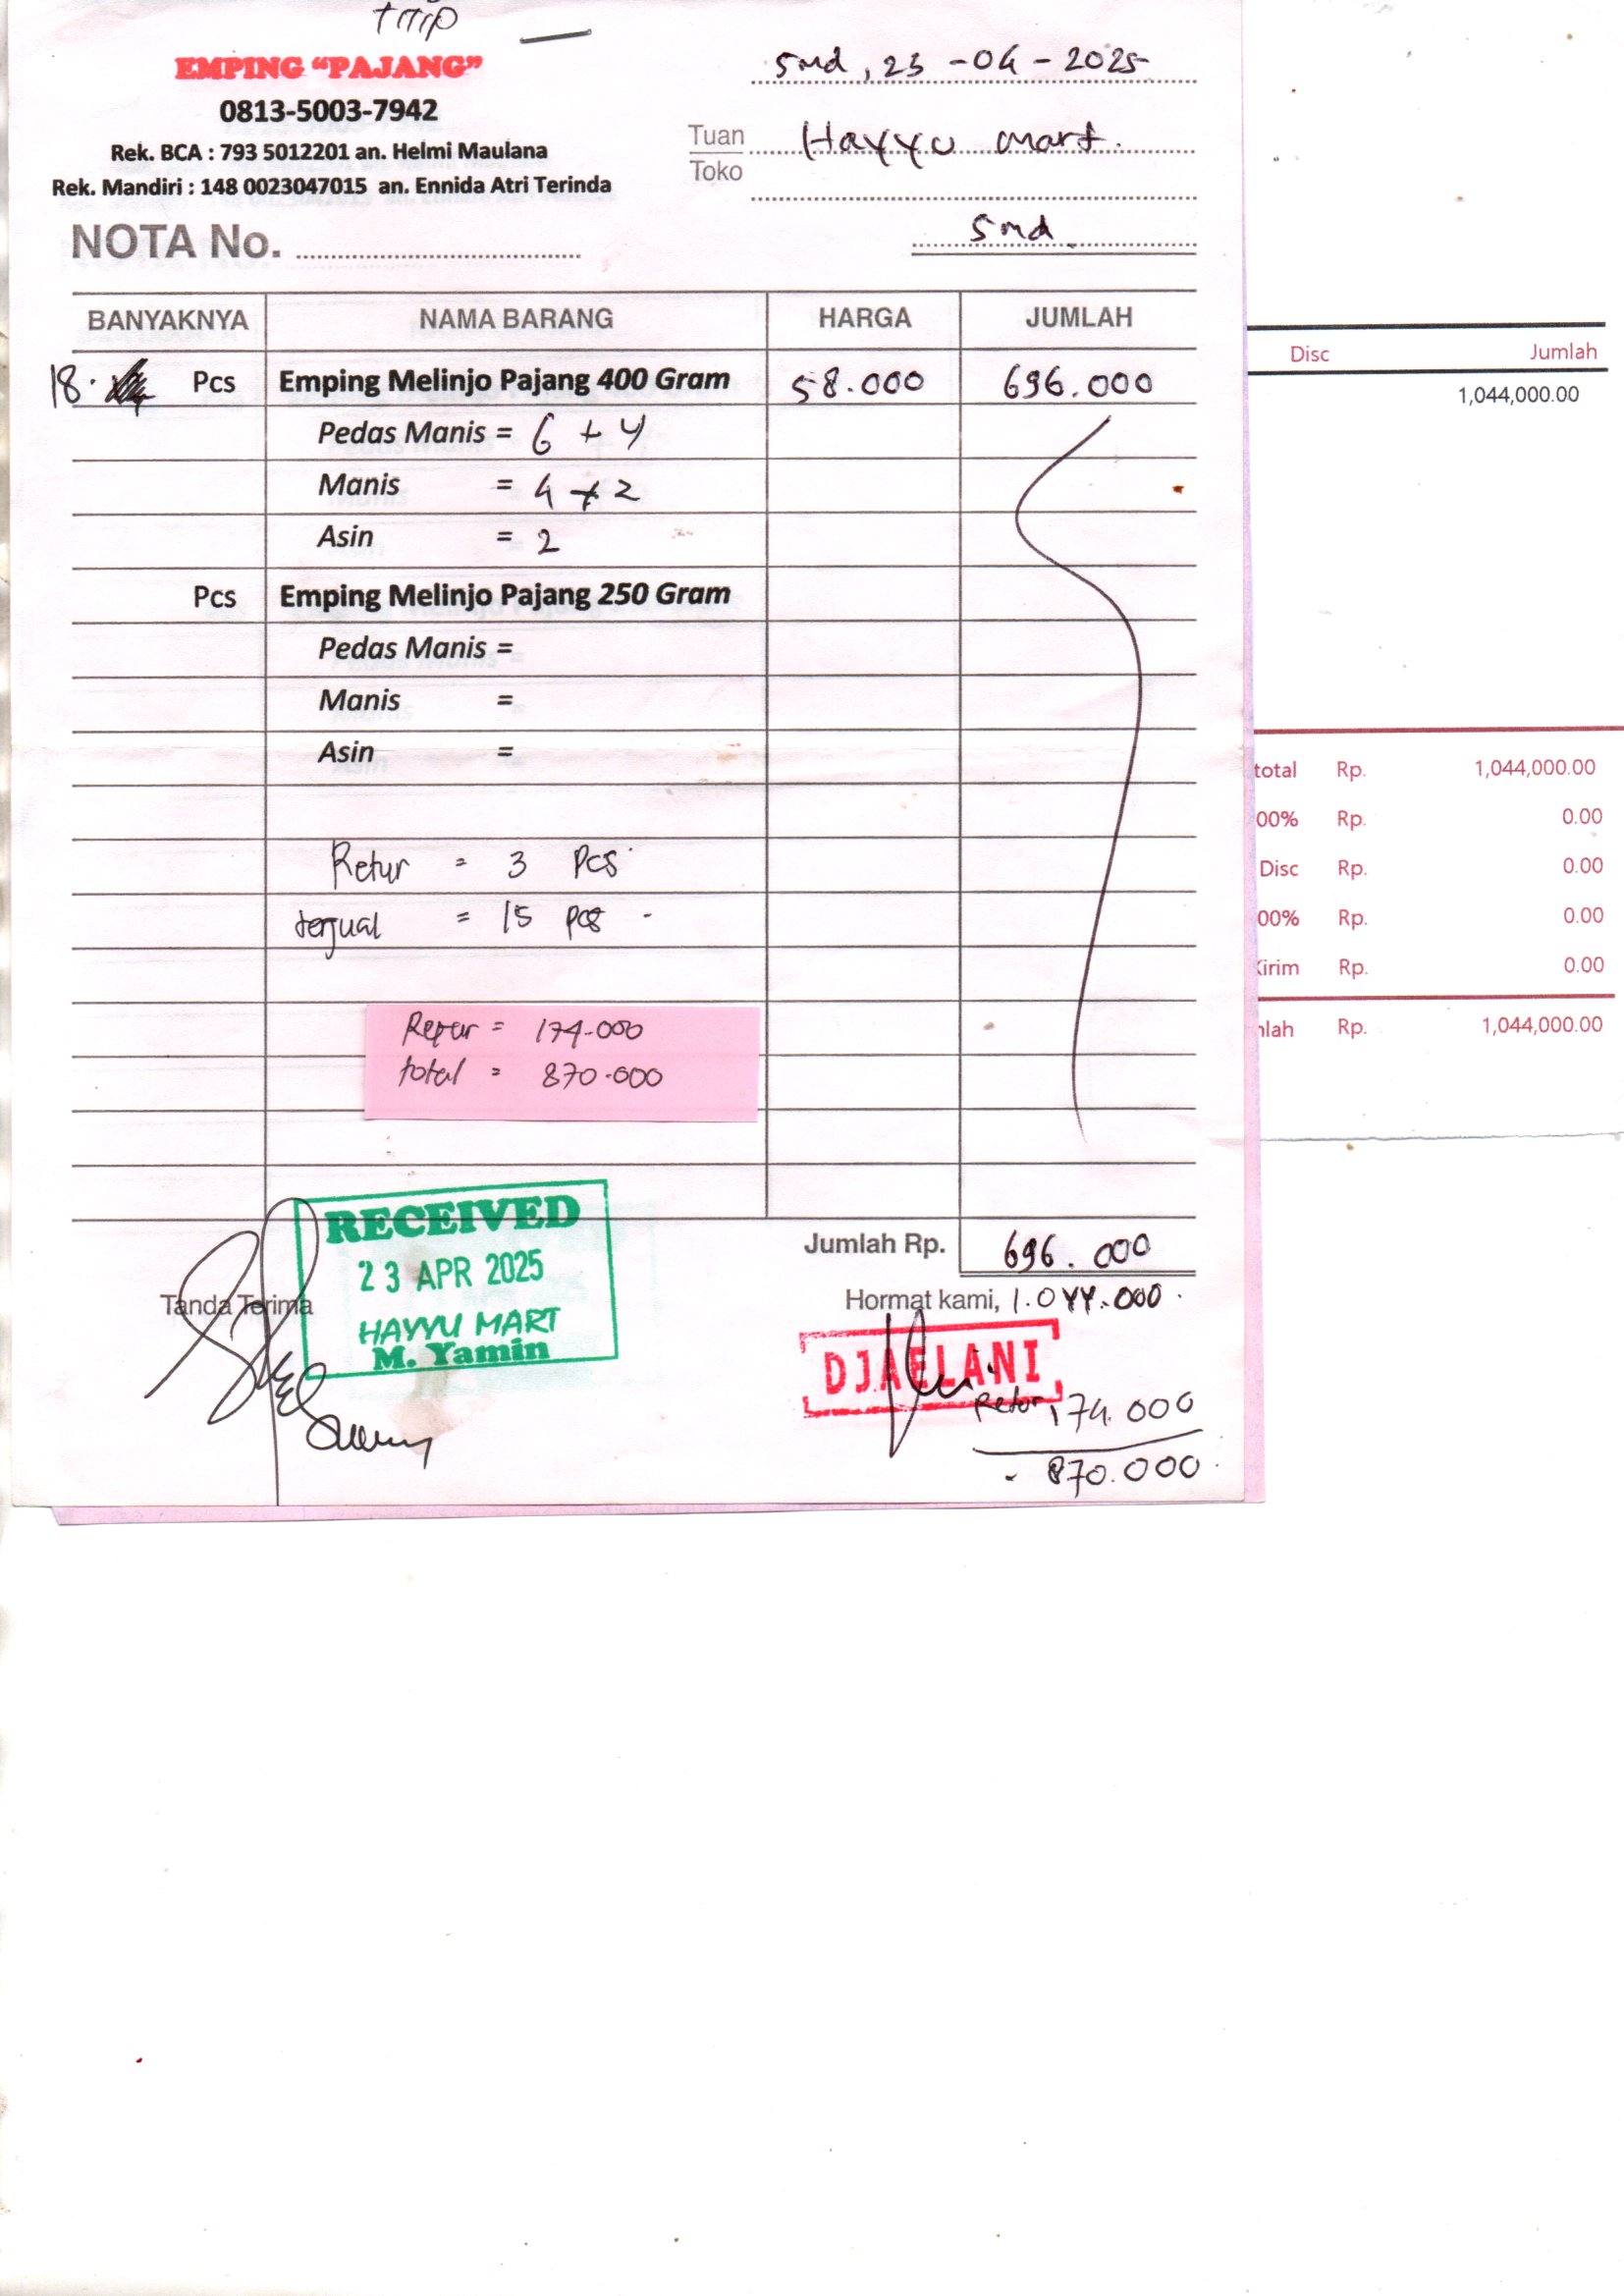 EMPING "PAJANG"
0813-5003-7942
Rek. BCA : 793 5012201 an. Helmi Maulana
Rek. Mandiri : 148 0023047015 an. Ennida Atri Terinda
Smd, 23 - 04 - 2025
Tuan Hayyu Mart.
Toko
NOTA No.
Smd.
BANYAKNYA NAMA BARANG HARGA JUMLAH
18. Pcs Emping Melinjo Pajang 400 Gram 58.000 696.000
Pedas Manis = 6 + 4
Manis = 4 + 2
Asin = 2
Pcs Emping Melinjo Pajang 250 Gram
Pedas Manis =
Manis =
Asin =
Retur = 3 Pcs
terjual = 15 pcs -
Retur = 174.000
total = 870.000
Jumlah Rp. 696.000
Tanda Terima
RECEIVED
23 APR 2025
HAYYU MART
M. Yamin
Hormat kami, 1.044.000.
DJAELANI
Retur 174.000
870.000
Disc Jumlah
1,044,000.00
total Rp. 1,044,000.00
00% Rp. 0.00
Disc Rp. 0.00
00% Rp. 0.00
Kirim Rp. 0.00
mlah Rp. 1,044,000.00